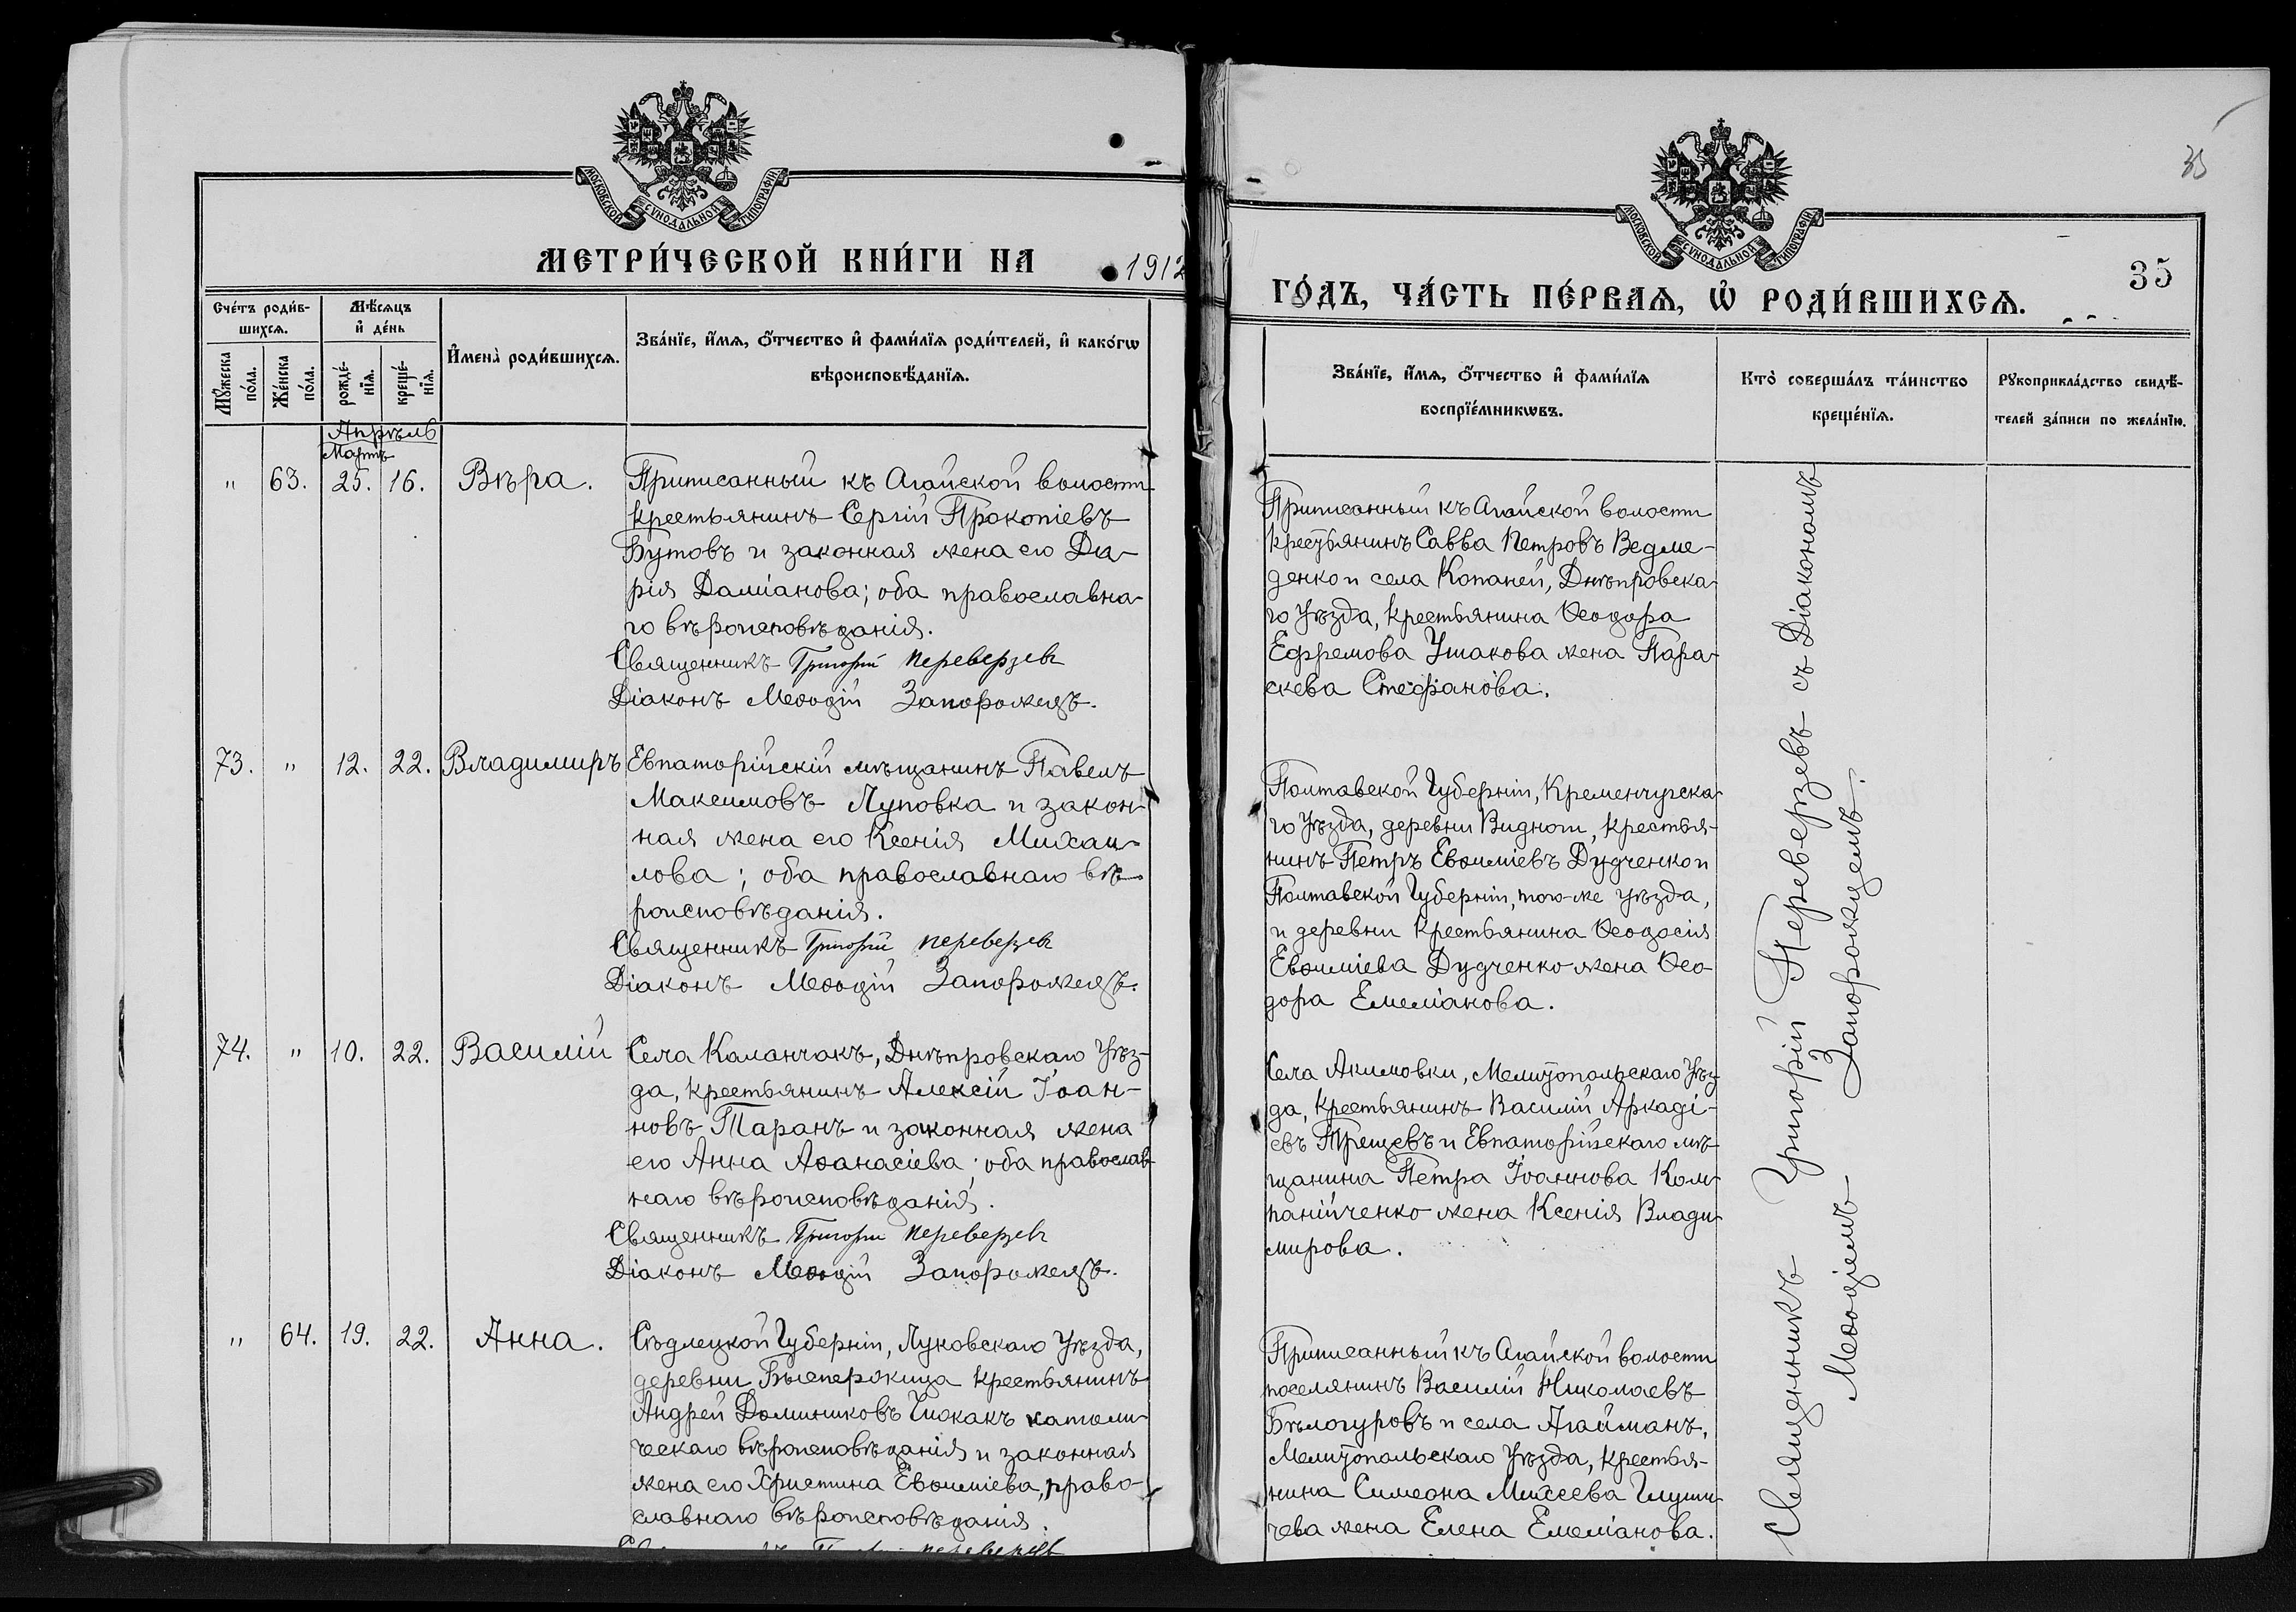 МОСКОВСКОЙ СѴНОДАЛЬНОЙ ТИПОГРАФІИ
МЕТРИ́ЧЕСКОЙ КНИ́ГИ НА 1912
Сче́тъ роди́в-
шихсѧ.
Мѣ́сяцъ
и҆ де́нь
Мꙋ́жеска
по́ла.
Же́нска
по́ла.
рожде́-
нїѧ.
креще́-
нїѧ.
И҆мена̀ роди́вшихсѧ.
Зва́нїе, и҆́мѧ, ѻ҆́тчество и҆ фами́лїѧ роди́телей, и҆ како́гѡ
вѣроисповѣ́данїѧ.
Апрѣль
Мартъ
" 63. 25. 16. Вѣра.
Приписанный къ Агайской волости
крестьянинъ Сергій Прокопіевъ
Бутовъ и законная жена его Да-
рія Даміанова; оба православна-
го вѣроисповѣданія.
Священникъ Григорій Переверзевъ
Діаконъ Меѳодій Запорожецъ.
73. " 12. 22. Владимиръ
Евпаторійскій мѣщанинъ Павелъ
Максимовъ Луповка и закон-
ная жена его Ксенія Михаи-
лова; оба православнаго вѣ-
роисповѣданія.
Священникъ Григорій Переверзевъ
Діаконъ Меѳодій Запорожецъ.
74. " 10. 22. Василій
Села Каланчакъ, Днѣпровскаго Уѣз-
да, крестьянинъ Алексій Іоан-
новъ Таранъ и законная жена
его Анна Аѳанасіева; оба православ-
наго вѣроисповѣданія.
Священникъ Григорій Переверзевъ
Діаконъ Меѳодій Запорожецъ.
" 64. 19. 22. Анна.
Сѣдлецкой Губерніи, Луковскаго Уѣзда,
деревни крестьянинъ
Андрей Доминиковъ католи-
ческаго вѣроисповѣданія и законная
жена его Христина Евѳиміева, право-
славнаго вѣроисповѣданія.
35
МОСКОВСКОЙ СѴНОДАЛЬНОЙ ТИПОГРАФІИ
35
ГО́ДЪ, ЧА́СТЬ ПЕ́РВАѦ, Ѡ҆ РОДИ́ВШИХСѦ.
Зва́нїе, и҆́мѧ, ѻ҆́тчество и҆ фами́лїѧ
воспрїе́мникѡвъ.
Кто̀ соверша́лъ та́инство
креще́нїѧ.
Рꙋкоприкла́дство свидѣ́-
телей за́писи по жела́нїю.
Приписанный къ Агайской волости
крестьянинъ Савва Петровъ Ведме-
денко и села Копаней, Днѣпровска-
го Уѣзда, крестьянина Ѳеодора
Ефремова Ушакова жена Пара-
скева Стефанова.
Полтавской Губерніи, Кременчугска-
го Уѣзда, деревни крестья-
нинъ Петръ Евѳиміевъ Дудченко и
Полтавской Губерніи, того-же уѣзда,
и деревни крестьянина Ѳеодосія
Евѳиміева Дудченко жена Ѳео-
дора Емеліанова.
Села Акимовки, Мелитопольскаго Уѣз-
да, крестьянинъ Василій Аркаді-
евъ и Евпаторійскаго мѣ-
щанина Петра Іоаннова Ком-
панійченко жена Ксенія Влади-
мирова.
Приписанный къ Агайской волости
поселянинъ Василій Николаевъ
Бѣлогуровъ и села Агайманъ,
Мелитопольскаго Уѣзда, крестья-
нина Симеона Михеева
жена Елена Емеліанова.
Священникъ Григорій Переверзевъ съ Діакономъ
Меѳодіемъ Запорожцемъ.